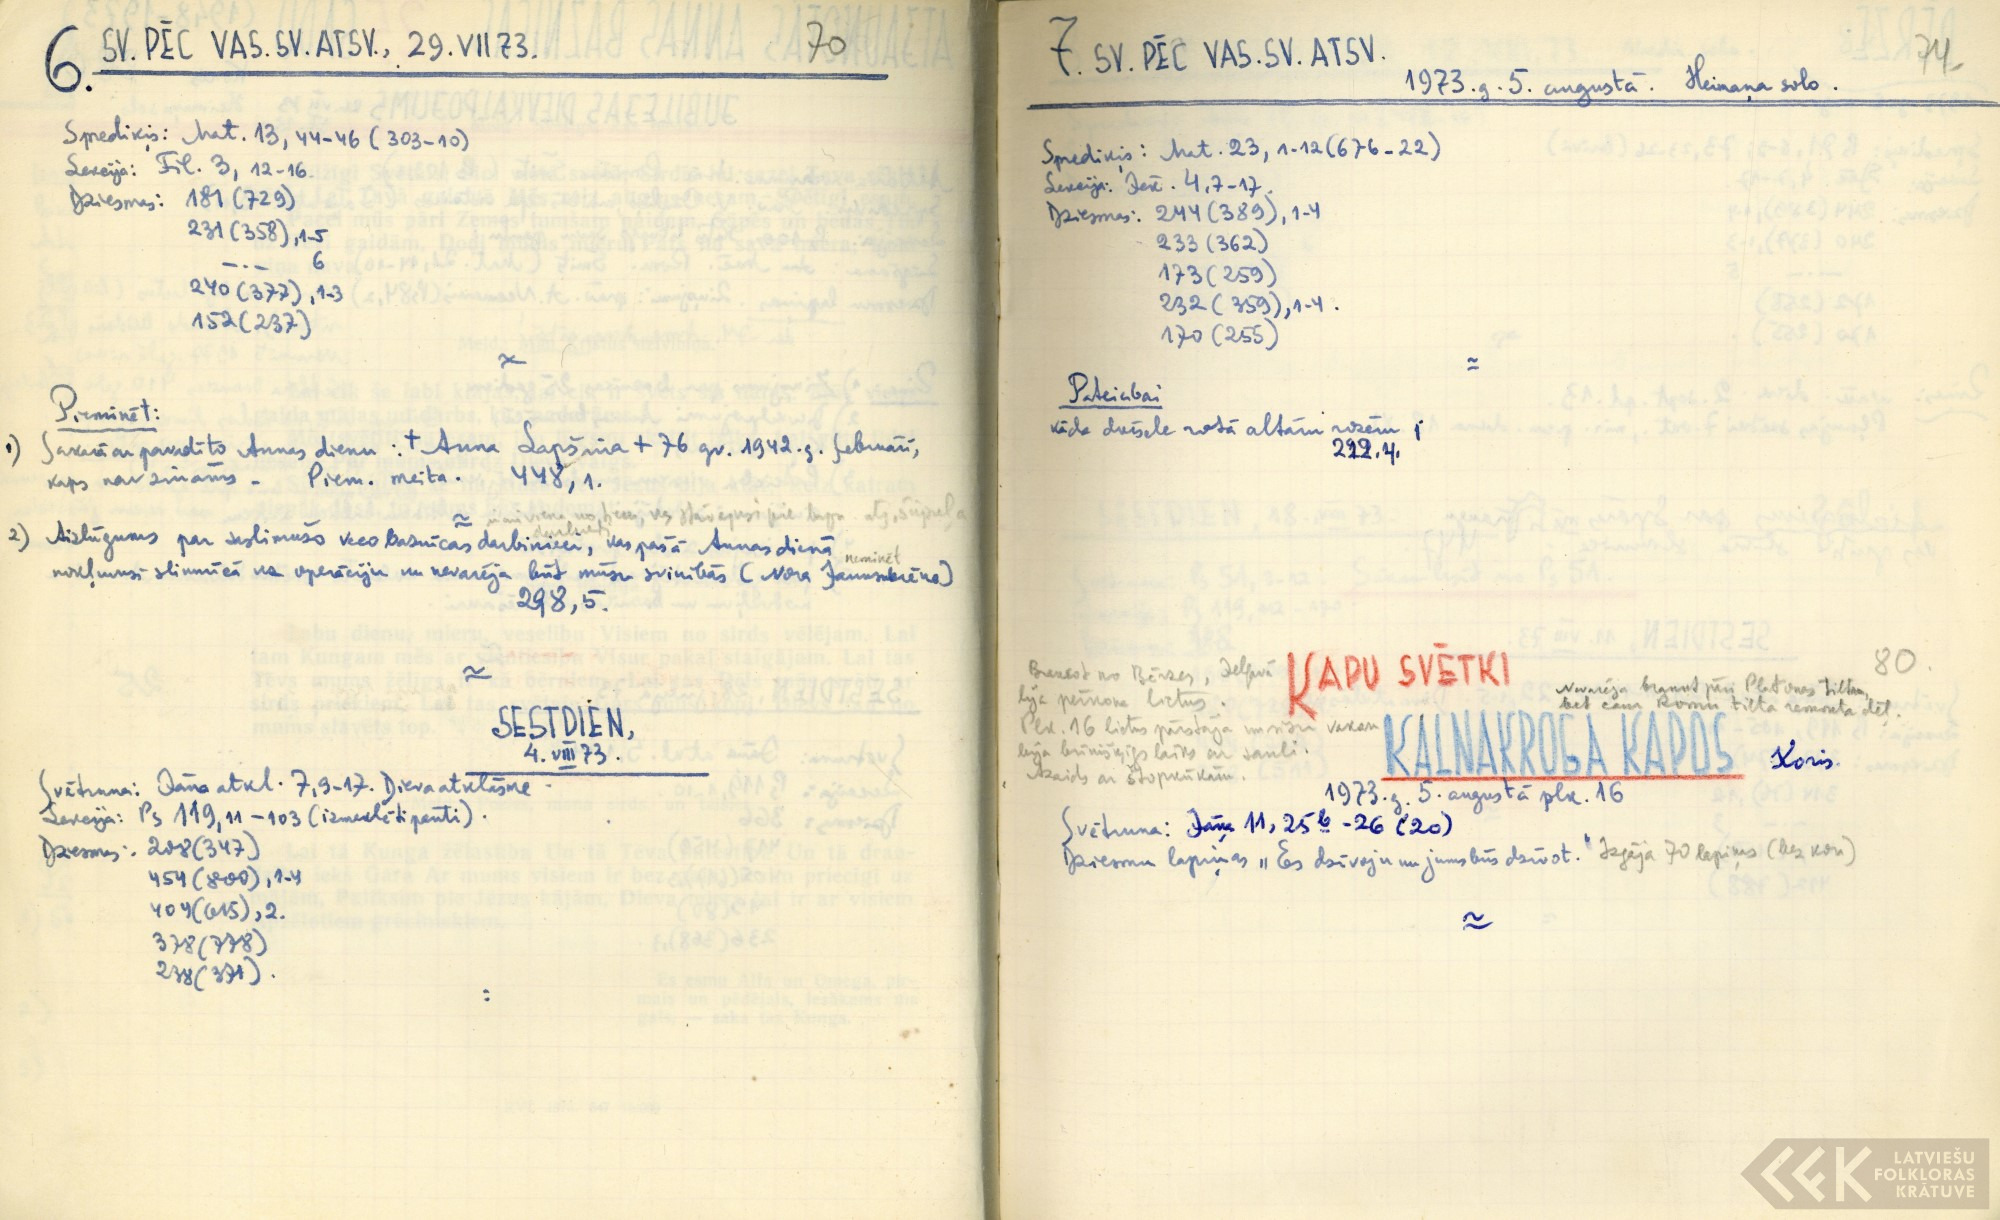 6. SV. PĒC VAS. SV. ATSV., 29. VII 73. 70
Sprediķis: Mat. 13, 44-46 (303-10)
Lekcija: Fil. 3, 12-16.
Dziesmas: 181 (729)
231 (358), 1-5
—.— 6
240 (377), 1-3
152 (237)
Pieminēt:
1) Sakarā ar pavadīto Annas dienu: + Anna Lapšiņa + 76 gv. 1942. g. februārī,
kaps nav zināms - Piem. meita. 448, 1.
2) Aizlūgums par saslimušo veco baznīcas darbinieci, kas pašā Annas dienā
nokļuvusi slimnīcā uz operāciju un nevarēja būt mūsu svinībās (Nora) neminēt
298, 5.
SESTDIEN,
4. VIII 73.
Svētruna: Jāņa atkl. 7, 9-17. Dieva atklāsme -
Lekcija: Ps 119, 11-103 (izmeklēti panti).
Dziesmas: 208 (347)
454 (800), 1-4
404 (615), 2.
378 (778)
238 (371).
7. SV. PĒC VAS. SV. ATSV. 74.
1973. g. 5. augustā. Heimaņa solo.
Sprediķis: Mat. 23, 1-12 (676-22)
Lekcija: Jer. 4, 7-17.
Dziesmas: 244 (389), 1-4
233 (362)
173 (259)
232 (359), 1-4.
170 (255)
Pateicībai
kāda dvēsele rotā altāri rozēm;
222. 4.
80.
Braucot no Bērzes, Jelgavā
lija pērkona lietus.
Plk. 16 lietus pārstāja un
bija brīnišķīgs laiks ar sauli.
KAPU SVĒTKI
Nevarēja braukt pāri Platones tiltam,
bet caur tilta remonta dēļ.
KALNAKROGA KAPOS Koris.
1973. g. 5. augustā plk. 16
Svētruna: Jāņa 11, 25b-26 (20)
Dziesmu lapiņas „Es dzīvoju un jums būs dzīvot." Izgāja 70 lapiņas (bez kora)
LATVIEŠU
FOLKLORAS
KRĀTUVE